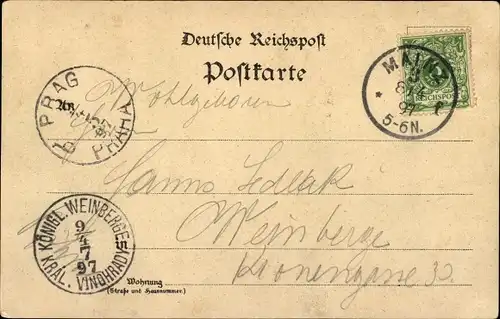 Deutsche Reichspost
Postkarte
MAINZ
8/4
97
5-6N.
REICHSPOST
PRAG
PRAHA
Wohlgeboren
Hanns Sedlak
Weinberge
KÖNIGL. WEINBERGE
9
4
7
97
KRÁL. VINOHRADY
in
Wohnung
(Straße und Hausnummer)